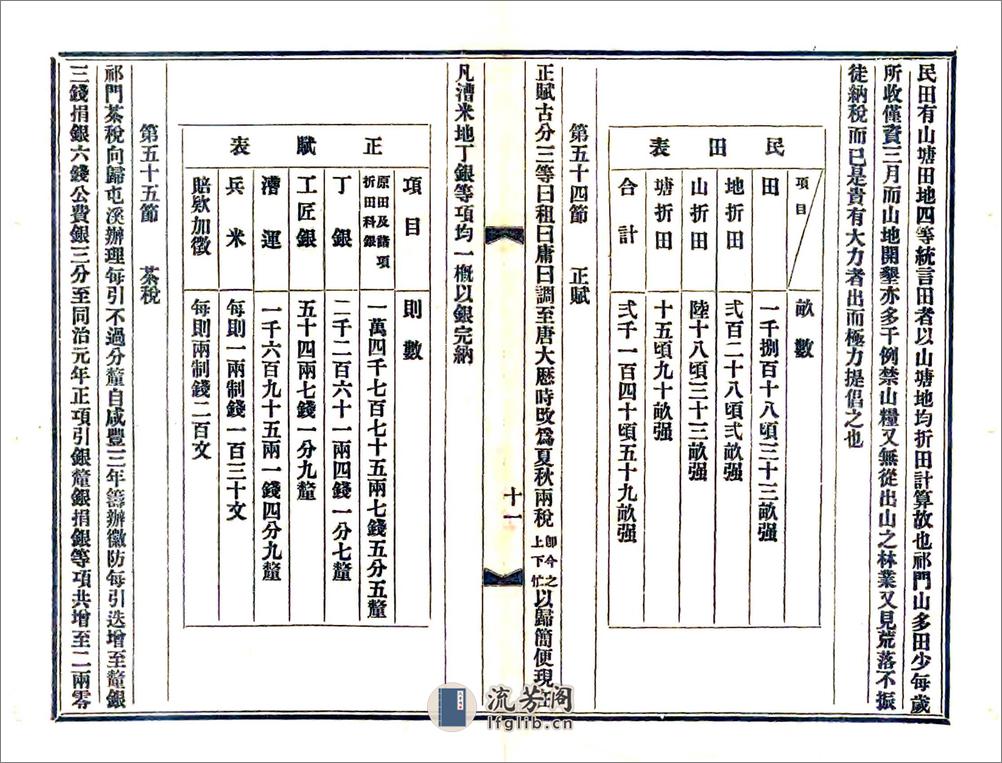 民田有山塘田地四等統言田者以山塘地均折田計算故也祁門山多田少每歲
所收僅資三月而山地開墾亦多干例禁山糧又無從出山之林業又見荒落不振
徒納稅而已是貴有大力者出而極力提倡之也
民田表
項目 畝數
田 一千捌百十八頃三十三畝强
地折田 弍百二十八頃弍畝强
山折田 陸十八頃三十三畝强
塘折田 十五頃九十畝强
合計 弍千一百四十頃五十九畝强
第五十四節 正賦
正賦古分三等曰租曰庸曰調至唐大厯時改爲夏秋兩稅卽今之上下忙以歸簡便現
十一
凡漕米地丁銀等項均一槪以銀完納
正賦表
項目 則數
原田及諸項折田科銀 一萬四千七百七十五兩七錢五分五釐
丁銀 二千二百六十一兩四錢一分七釐
工匠銀 五十四兩七錢一分九釐
漕運 一千六百九十五兩一錢四分九釐
兵米 每則一兩制錢一百三十文
賠欵加徵 每則兩制錢二百文
第五十五節 茶稅
祁門茶稅向歸屯溪辦理每引不過分釐自咸豐三年籌辦徽防每引迭增至釐銀
三錢捐銀六錢公費銀三分至同治元年正項引銀釐銀捐銀等項共增至二兩零
流芳阁
lfglib.cn